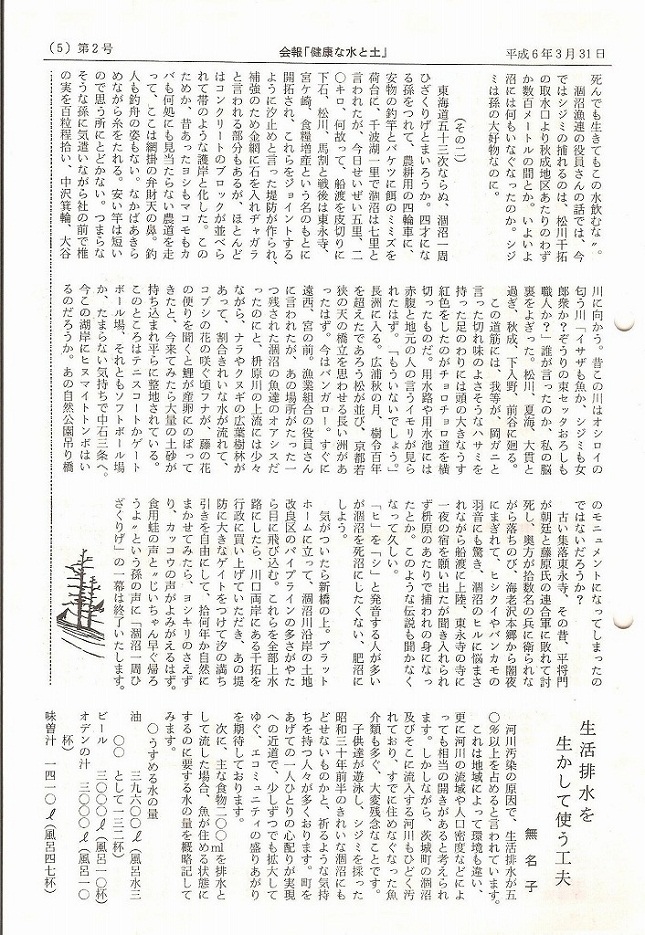 (5) 第2号
会報「健康な水と土」
平成6年3月31日
死んでも生きてもこの水飲むな〟。
涸沼漁連の役員さんの話では、今
ではシジミの捕れるのは、松川干拓
の取水口より秋成地区あたりのわず
か数百メートルの間とか。いよいよ
沼には何もいなくなったのか。シジ
ミは孫の大好物なのに。
(その二)
東海道五十三次ならぬ、涸沼一周
ひざくりげとまいろうか。四才にな
る孫をつれて、農耕用の四輪車に、
安物の釣竿とバケツに餌のミミズを
荷台に、千波湖一里で涸沼は七里と
言われたが、今日せいぜい五里、二
〇キロ、何故って、船渡を皮切りに
下石、松川、馬割と戦後は東永寺、
宮ケ崎、食糧増産という名のもとに
開拓され、これらをジョイントする
ように汐止めと言った堤防が作られ、
補強のため金網に石を入れヂャガラ
と言われる部分もあるが、ほとんど
はコンクリートのブロックが並べら
れて帯のような護岸と化した。この
ためか、昔あったヨシもマコモもカ
バも何処にも見当たらない農道を走
って、ここは網掛の弁財天の鼻。釣
人も釣舟の姿もない。なかばあきら
めながら糸をたれる。安い竿は短い
ので思う所にとどかない。つまらな
そうな孫に気遣いながら社の前で椎
の実を百粒程拾い、中沢箕輪、大谷
川に向かう。昔この川はオシロイの
匂う川「イサザも魚か、シジミも女
郎衆か?ぞうりの束セッタおろしも
職人か?」誰が言ったのか、私の脳
裏をよぎった。松川、夏海、大貫と
過ぎ、秋成、下入野、前谷に廻る。
この道筋には、我等が、岡ガニと
言った切れ味のよさそうなハサミを
持った足のわりには頭の大きなうす
紅色をしたのがチョロチョロ道を横
切ったものだ。用水路や用水池には
赤腹と地元の人の言うイモリが見ら
れたはず。「もういないでしょう。」
長洲に入る。広浦秋の月、樹令百年
を超えたであろう松が並び、京都若
狭の天の橋立を思わせる長い洲があ
ったはず。今はバンガロー。すぐに
遠西、宮の前。漁業組合の役員さん
に言われたが、あの場所がたった一
つ残された涸沼の魚達のオアシスだ
ったのにと、枡原川の上流には少々
ながら、ナラやクヌギの広葉樹林が
あって、割合きれいな水が流れて、
コブシの花の咲く頃フナが、藤の花
の便りを聞くと鯉が産卵にのぼって
きたと、今来てみたら大量の土砂が
持ち込まれ平らに整地されている。
このところはテニスコートかゲート
ボール場、それともソフトボール場
か、たまらない気持ちで中石三条へ。
今この湖岸にヒヌマイトトンボはい
るのだろうか。あの自然公園吊り橋
のモニュメントになってしまったの
ではないだろうか?
古い集落東永寺、その昔、平将門
が朝廷と藤原氏の連合軍に敗れて討
死し、奥方が拾数名の兵に衛られな
がら落ちのび、海老沢本郷から闇夜
にまぎれて、ヒシクイやバンカモの
羽音にも驚き、涸沼のヒルに悩まさ
れながら船渡に上陸、東永寺の寺に
一夜の宿を願い出たが聞き入れられ
ず枡原のあたりで捕われの身になっ
たとか。このような伝説も聞かなく
なって久しい。
「ヒ」を「シ」と発音する人が多い
が涸沼を死沼にしたくない、肥沼に
しよう。
気がついたら新橋の上。プラット
ホームに立って、涸沼川沿岸の土地
改良区のパイプラインの多さがやた
ら目に飛び込む。これらを全部上水
路にしたら、川口両岸にある干拓を
行政に買い上げていただき、あの堤
防に大きなゲイトをつけて汐の満ち
引きを自由にして、拾何年か自然に
まかせてみたら、ヨシキリのさえず
り、カッコウの声がよみがえるはず。
食用蛙の声と〝じいちゃん早ぐ帰ろ
うよ〟という孫の声に「涸沼一周ひ
ざくりげ」の一幕は終了いたします。
生活排水を
生かして使う工夫
無名子
河川汚染の原因で、生活排水が五
〇%以上を占めると言われています。
これは地域によって環境も違い、
更に河川の流域や人口密度などによ
っても相当の開きがあると考えられ
ます。しかしながら、茨城町の涸沼
及びそこに流入する河川もひどく汚
れており、すでに住めなくなった魚
介類も多ぐ、大変残念なことです。
子供達が遊泳し、シジミを採った
昭和三十年前半のきれいな涸沼にも
どせないものかと、祈るような気持
ちを持つ人々が多くおります。町を
あげての一人ひとりの心配りが実現
への近道で、少しずつでも拡大して
ゆぐ、エコミュニティの盛りあがり
を期待しております。
次に、主な食物二〇〇mlを排水と
して流した場合、魚が住める状態に
するのに要する水の量を概略記して
みます。
〇うすめる水の量
油 三九六〇〇ℓ(風呂水三
〇〇 として一三二杯)
ビール 三〇〇〇ℓ(風呂一〇杯)
オデンの汁 三〇〇〇ℓ(風呂一〇
杯)
味噌汁 一四一〇ℓ(風呂四七杯)